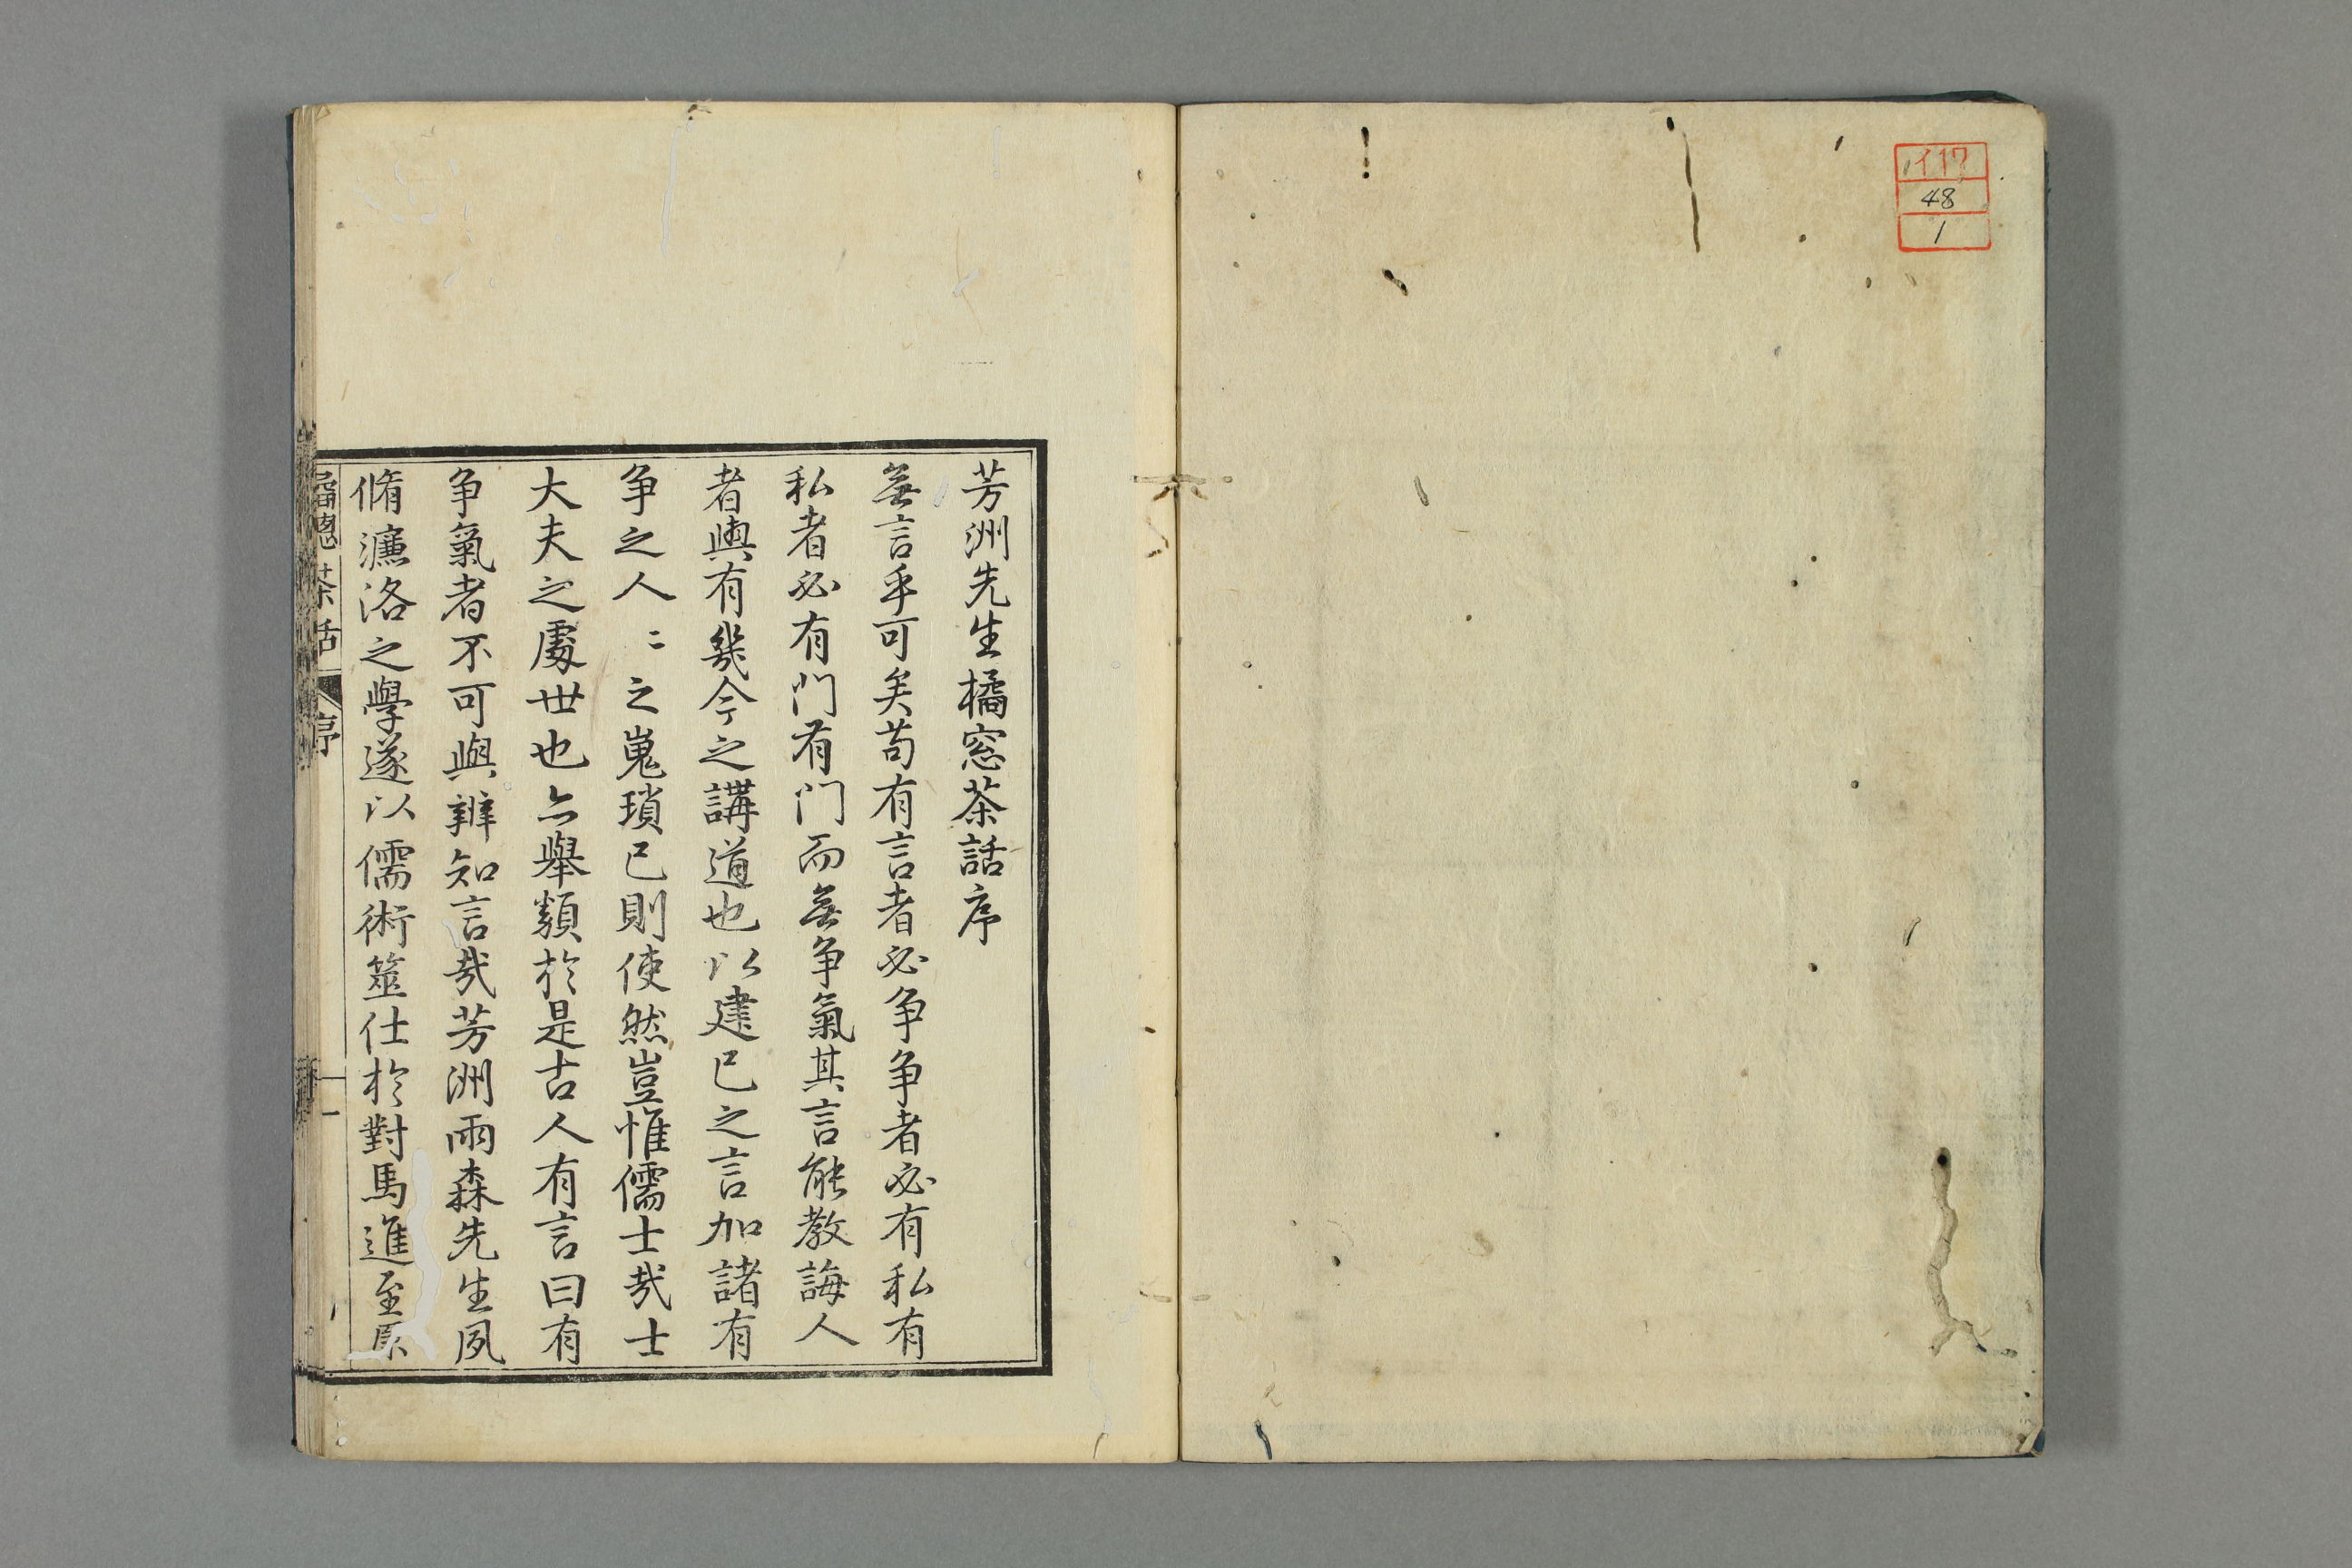 イ17
48
1
芳洲先生橘窓茶話序
無言乎可矣苟有言者必争争者必有私有
私者必有門有门而無争氣其言能教誨人
者與有幾今之講道也以建已之言加諸有
争之人〻之嵬瑣已則使然豈惟儒士哉士
大夫之處世也亦舉類於是古人有言曰有
争氣者不可與辨知言哉芳洲雨森先生夙
脩濂洛之學遂以儒術筮仕於對馬進至原
橘窓茶話 序
一